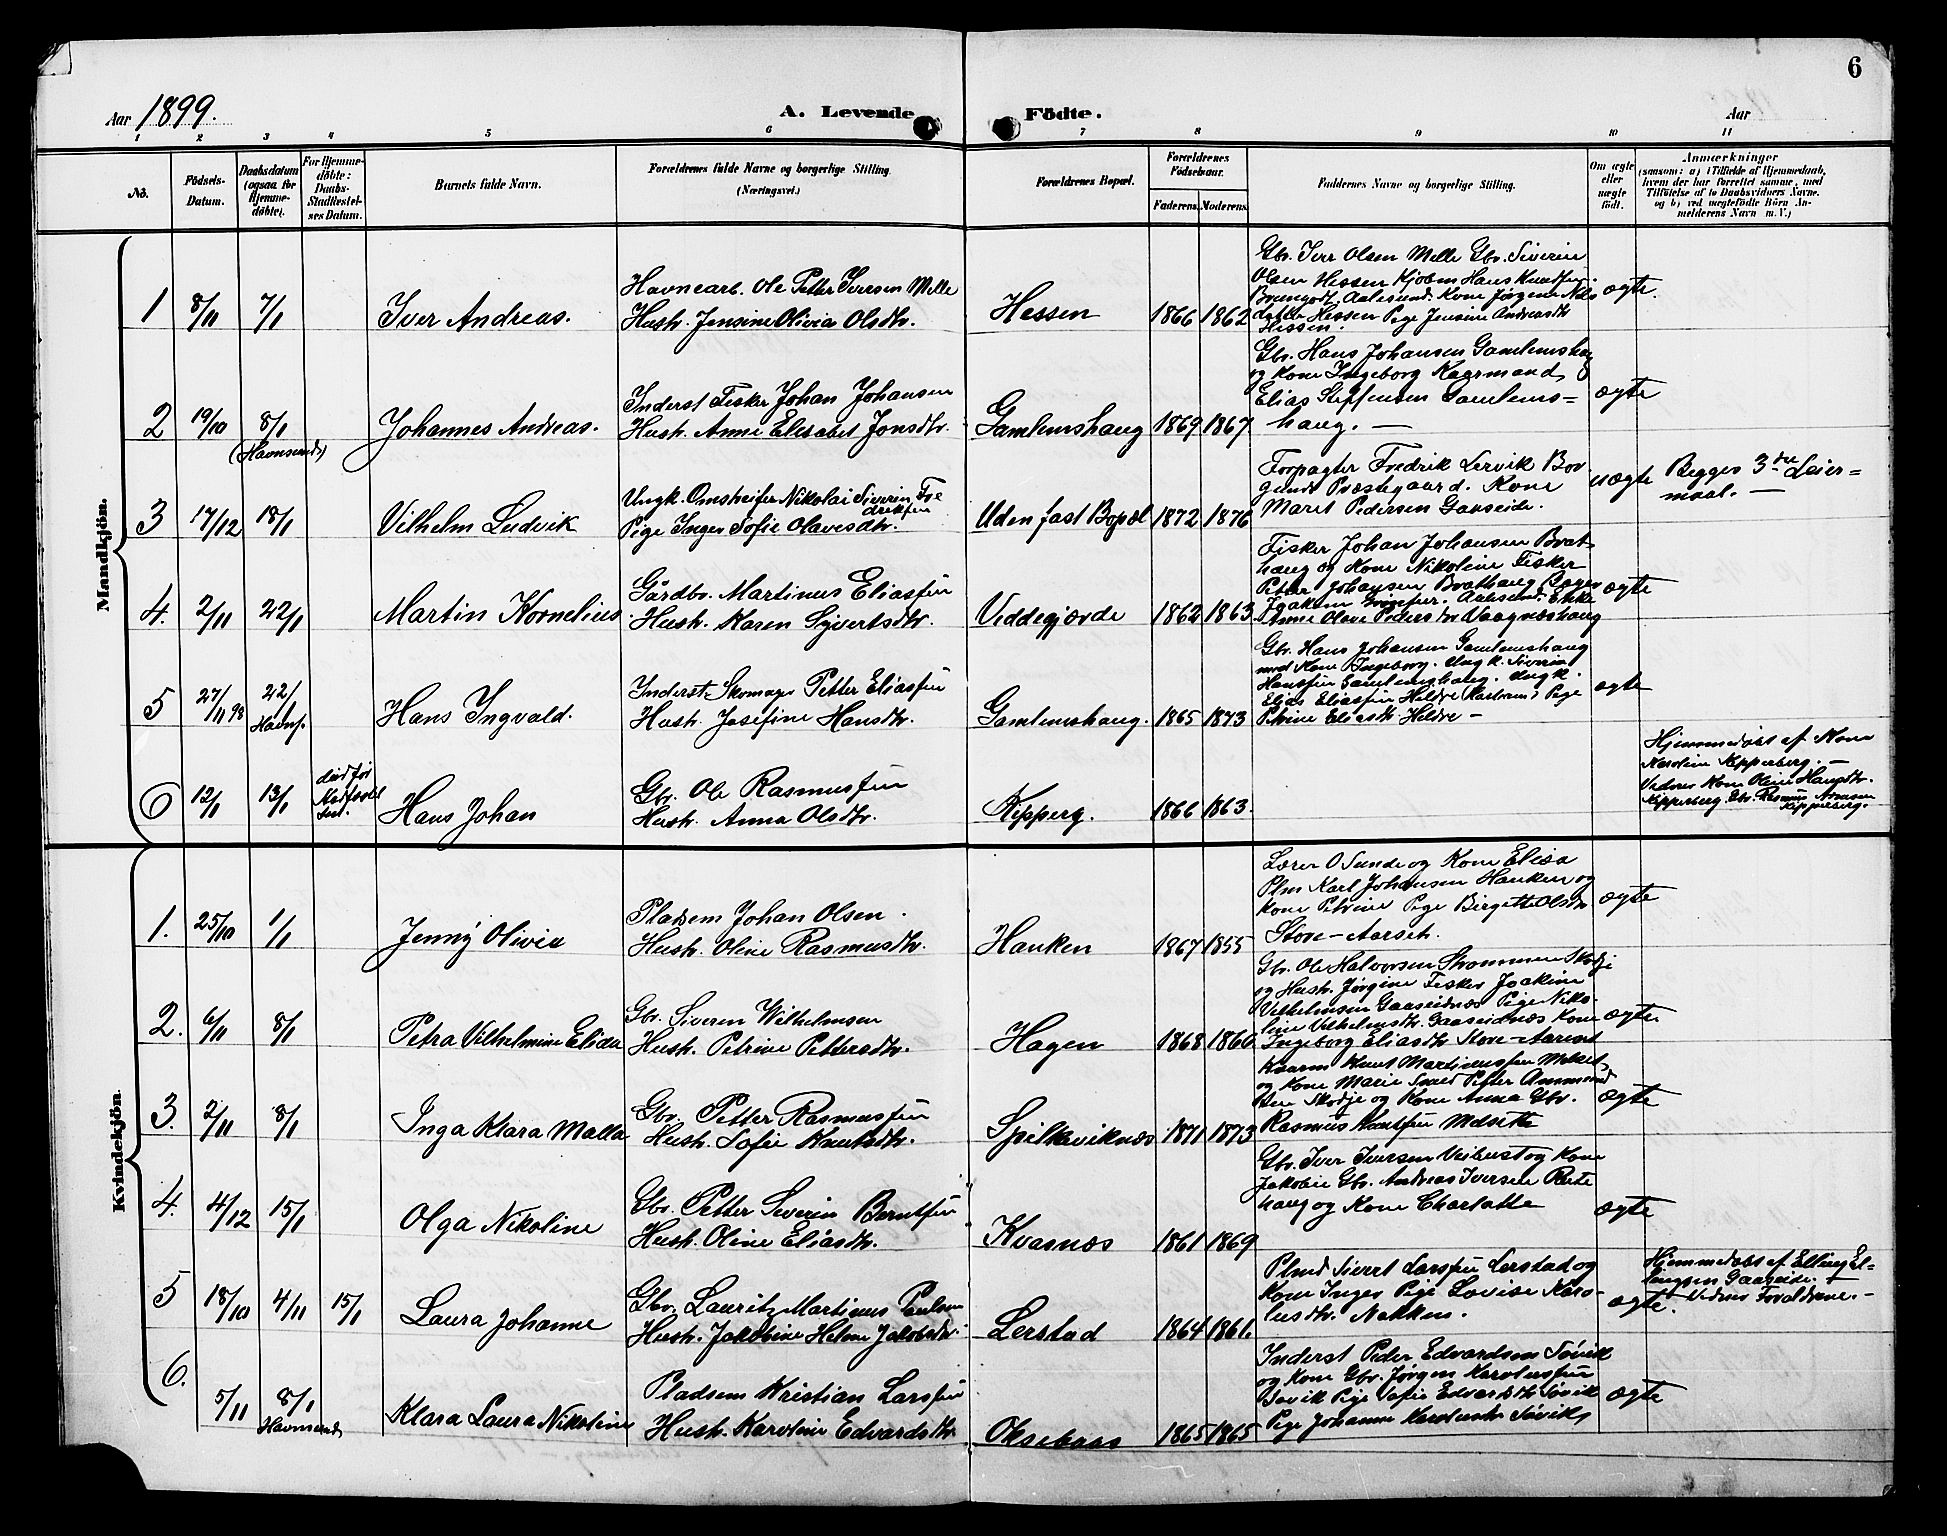 6
Aar 1899.
A. Levende
Födte.
Aar
1 2 3 4 5 6 7 8 9 10 11
No.
Födsels-
Datum.
Daabsdatum
(ogsaa for
Hjemme-
döbte).
For Hjemme-
döbte:
Daabs-
Stadfæstel-
ses Datum.
Barnets fulde Navn.
Forældrenes fulde Navne og borgerlige Stilling.
(Næringsvei.)
Forældrenes Bopæl.
Forældrenes
Födselsaar.
Faderens. Moderens.
Faddernes Navne og borgerlige Stilling.
Om ægte
eller
uægte
födt.
Anmærkninger
(saasom: a) i Tilfælde af Hjemmedaab,
hvem der har forrettet samme, med
Tilföielse af to Daabsvidners Navne.
og b) ved uægtefödte Börn An-
melderens Navn m. V.)
Mandkjön.
1 8/11 7/1 Iver Andreas.
Havnearb. Ole Petter Iversen Melle
Hustr. Jensine Olivia Olsdtr.
Hessen 1866 1862
Gbr. Iver Olsen Melle Gbr. Siverin
Olsen Hessen Kjøbm Hans Knudsen
Aalesund. Kone Jørgine Nils
datter Hessen Pige Jensine Andreasdtr
Hessen.
ægte.
2 19/10 8/1 (Havnsund) Johannes Andreas.
Inderst Fisker Johan Johansen
Hustr. Anne Elisabet Jonsdtr.
Gamlemshaug 1869 1867
Gbr. Hans Johansen Gamlemshaug
og Kone Ingeborg Kaarmand
Elias Steffensen Gamlems-
haug. —
ægte
3 17/12 18/1 Vilhelm Ludvik
Ungk. Omstreifer Nikolai Siverin Fre
driksen
Pige Inger Sofie Olavesdtr.
Uden fast Bopæl 1872 1876
Forpagter Fredrik Lervik Bor
gunds Præstegaard. Kone
Marit Pedersen Gaaseide.
uægte
Begges 3die Leier=
maal. —
4. 2/11 22/1 Martin Kornelius.
Gårdbr. Martinus Eliassen
Hustr. Karen Syvertsdtr.
Viddegjærde 1862 1863
Fisker Johan Johansen Brat-
haug og Kone Nikoline Fisker
Petter Johansen Brathaug Bager
Joakim Aalesund. Enke
Anne Olave Pedersdtr Vaagnæshaug
ægte
5 27/11 98 22/1 Havns. Hans Ingvald.
Inderst. Skomager Petter Eliassen
Hustr. Josefine Hansdtr.
Gamlemshaug. 1865 1873
Gbr. Hans Johansen Gamlemshaug
med Kone Ingeborg. Ungk. Siverin
Hanssen Gamlemshaug. Ungk.
Elias Eliassen Heldre Pige
Petrine Eliasdtr Heldre —
ægte
6 12/1 13/1 død før
Stadfæstel
sen. Hans Johan
Gbr. Ole Rasmussen
Hustr. Anna Olsdtr.
Kipperg. 1866 1863.
Hjemmedøbt af Kone
Karoline Kipperberg. —
Vidner Kone Oline Hansdtr.
Kipperberg Gbr. Rasmus
Kipperberg.
Kvindekjön.
1. 25/10 1/1 Jenny Olivia
Pladsem Johan Olsen.
Hustr. Oline Rasmusdtr.
Hanken 1867 1855
Lærer O Sunde og Kone Elisa
Plm Karl Johansen Hanken og
Kone Petrine Pige Birgitte Olsdtr
Store-Aarset.
ægte
2. 6/11 8/1 Petra Vilhelmine Elida
Gbr. Siveren Wilhelmsen
Hustr. Petrine Pettersdtr.
Hagen 1868 1860
Gbr. Ole Halvorsen Strømmen Skodje
og Hustr. Jørgine Fisker Joakim
Vilhelmsen Gaaseidnæs Pige Niko-
line Vilhelmsdtr. Gaaseidnæs Kone
Ingeborg Eliasdtr Store-Aarset
ægte
3. 2/11 8/1 Inga Klara Malla
Gbr. Petter Rasmussen
Hustr. Sofie Knutsdtr.
Spilkeviknæs 1871 1873
Kaarm Knut Martinussen
og Kone Marie Petter Ammund
sen Skodje og Kone Anna Gbr.
Rasmus Knutsen
ægte
4. 4/12 15/1 Olga Nikoline
Gbr. Petter Severin Berntsen
Hustr. Oline Eliasdtr.
Kvasnæs 1861 1869
Gbr. Iver Iversen Veibust og Kone
Jakobie Gbr. Andreas Iversen
haug og Kone Charlotte
ægte
5 18/10 4/11 15/1 Laura Johanne
Gbr. Lauritz Martinus Paulsen
Hustr. Jakobine Helene Jakobsdtr.
Lerstad 1864 1861.
Plmd Sivert Larssen Lerstad og
Kone Inger Pige Lovise Karo-
lusdtr. Nakken.
ægte.
Hjemmedøbt af Elling El-
lingsen Gaaseide. —
Vidner Forældrene. —
6. 5/11 8/1 Havnsund Klara Laura Nikoline
Pladsem Kristian Larssen
Hustr. Karoline Edvardsdtr.
Oksebaas 1865 1865
Inderst Peder Edvardsen Søvik
og Kone Gbr. Jørgen Karolussen
Søvik Pige Sofie Edvardsdtr Søvik
Pige Johanne Karolusdtr Søvik
ægte